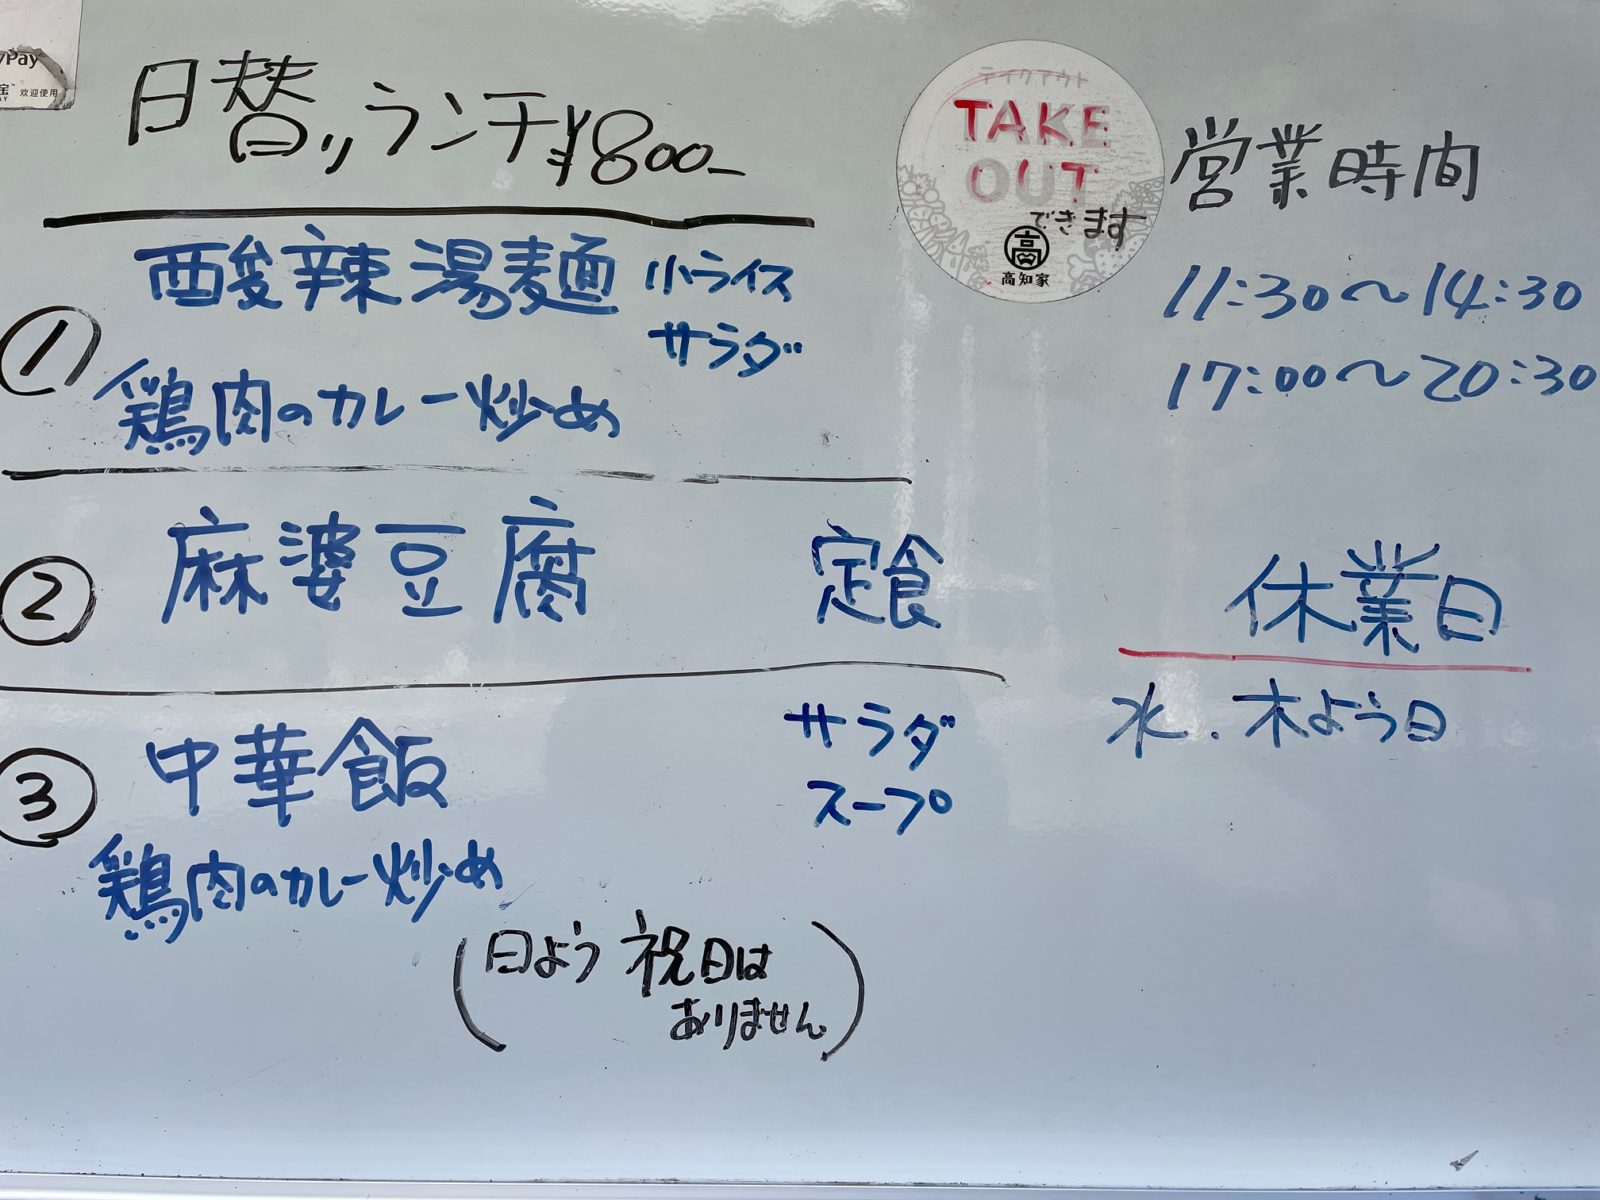 Pay
欢迎使用
日替りランチ¥800-
① 酸辣湯麺 小ライス
サラダ
鶏肉のカレー炒め
② 麻婆豆腐 定食
③ 中華飯 サラダ
スープ
鶏肉のカレー炒め
(日よう 祝日は
ありません)
テイクアウト
TAKE
OUT
できます
高
高知家
営業時間
11:30〜14:30
17:00〜20:30
休業日
水.木よう日